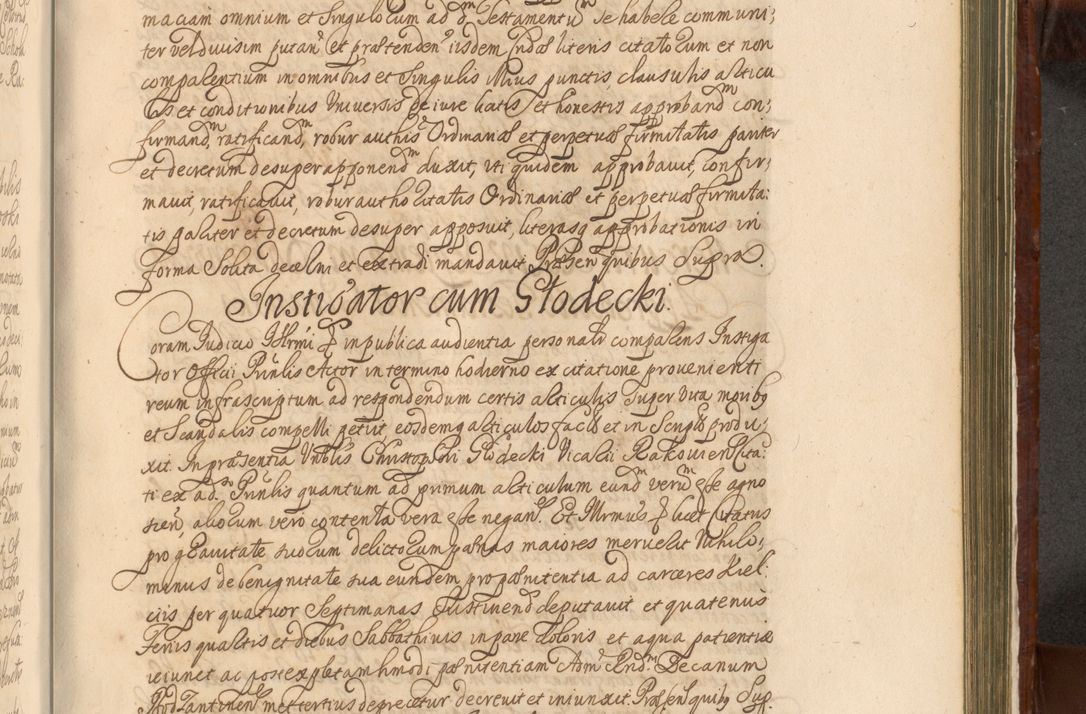 maciam omnium et Singulorum ad d͞m Testamentu͞m se habere communi:
ter vel divisim putan͞ et prætenden͞ iisdem Sndas literis citatorum et non
comparentium in omnibus et Singulis illius punctis, clausulis articu
lis et conditionibus Universis de iure licitis et honestis approband͞m con:
firmand͞m, ratificand͞m, robur authis͞ Ordinariæ et perpetuæ firmitatis pariter
et decretum desuper apponend͞m duxit, uti quidem approbavit, confir:
mavit, ratificavit, robur authoritatis Ordinariæ et perpetuæ firmita:
tis pariter et decretum desuper apposuit, literasq approbationis in
forma Solita dealm et extradi mandavit Præsen quibus Supra.
Instigator cum Głodecki.
Coram Judicio Illrmi in publica audientia personalr comparens Instiga
tor Officii Prinlis Actor in termino hodierno ex citatione provenienti
reum infrascriptum ad respondendum certis articulis super vita moribg
et Scandalis compelli petiit eosdemq articulos facto et in Scripto produ:
xit. In præsentia Vnblis Christophori Głodecki Vicarii Rakovien Cita:
ti ex ad. Prinlis quantum ad primum articulum eund͞m veru͞m esse agno
scen͞, aliorum vero contenta vera esse negan͞. Et Illrmus licet Citatus
pro gravitate suorum delictorum pœnas maiores meruerit Nihilo:
minus de benignitate sua eundem pro pœnitentia ad carceres Kiel:
ciis per quatuor Septimanas Sustinend͞ deputavit et quatenus
Feriis quartis et diebus Sabbathivis in pane doloris et aqua patientiæ
ieiunet ac post expletam hmodi pœnitentiam Adm͞ Rnd͞m Decanum
mettertius deprecetur decrevit et iniunxit. Præsen quibg Sup.